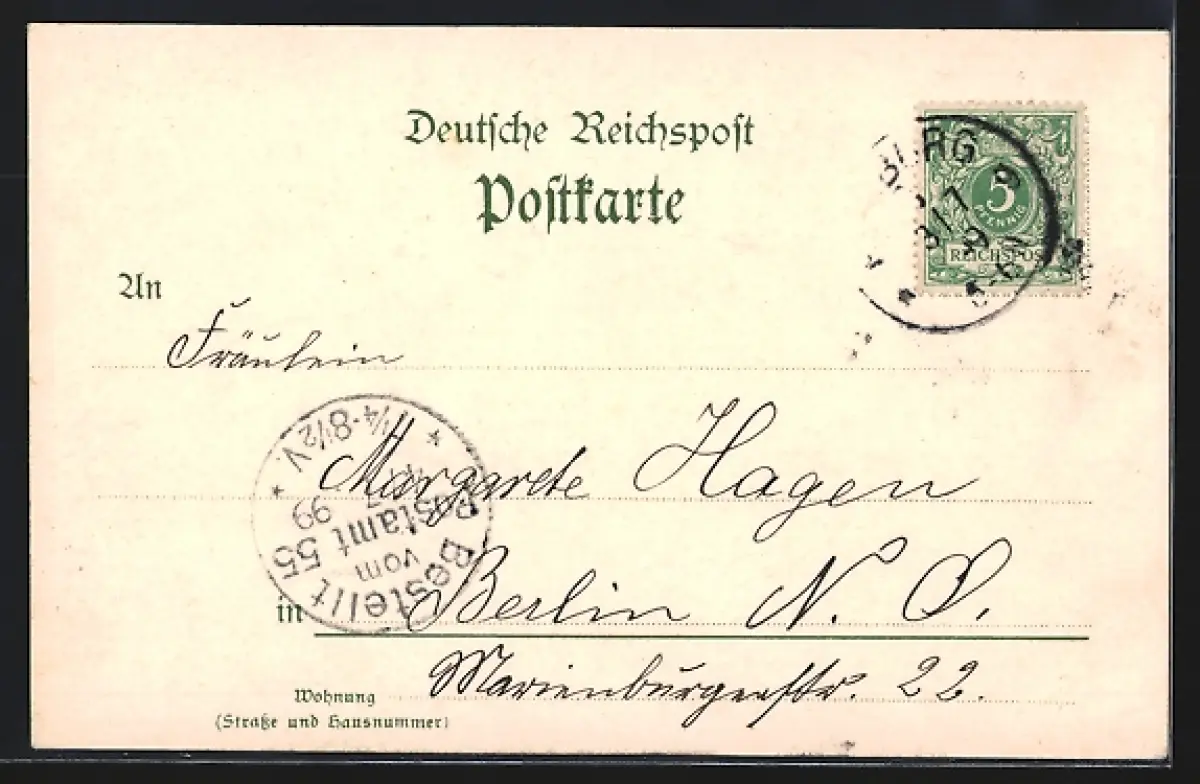 Deutsche Reichspost
Postkarte
5
PFENNIG
REICHSPOST
BURG
3/7
An
Fräulein
Margarete Hagen
in Berlin N. O.
Marienburgerstr. 22.
Wohnung
(Straße und Hausnummer)
Bestellt
vom
Postamt 55
7 99
1/4-8½V.